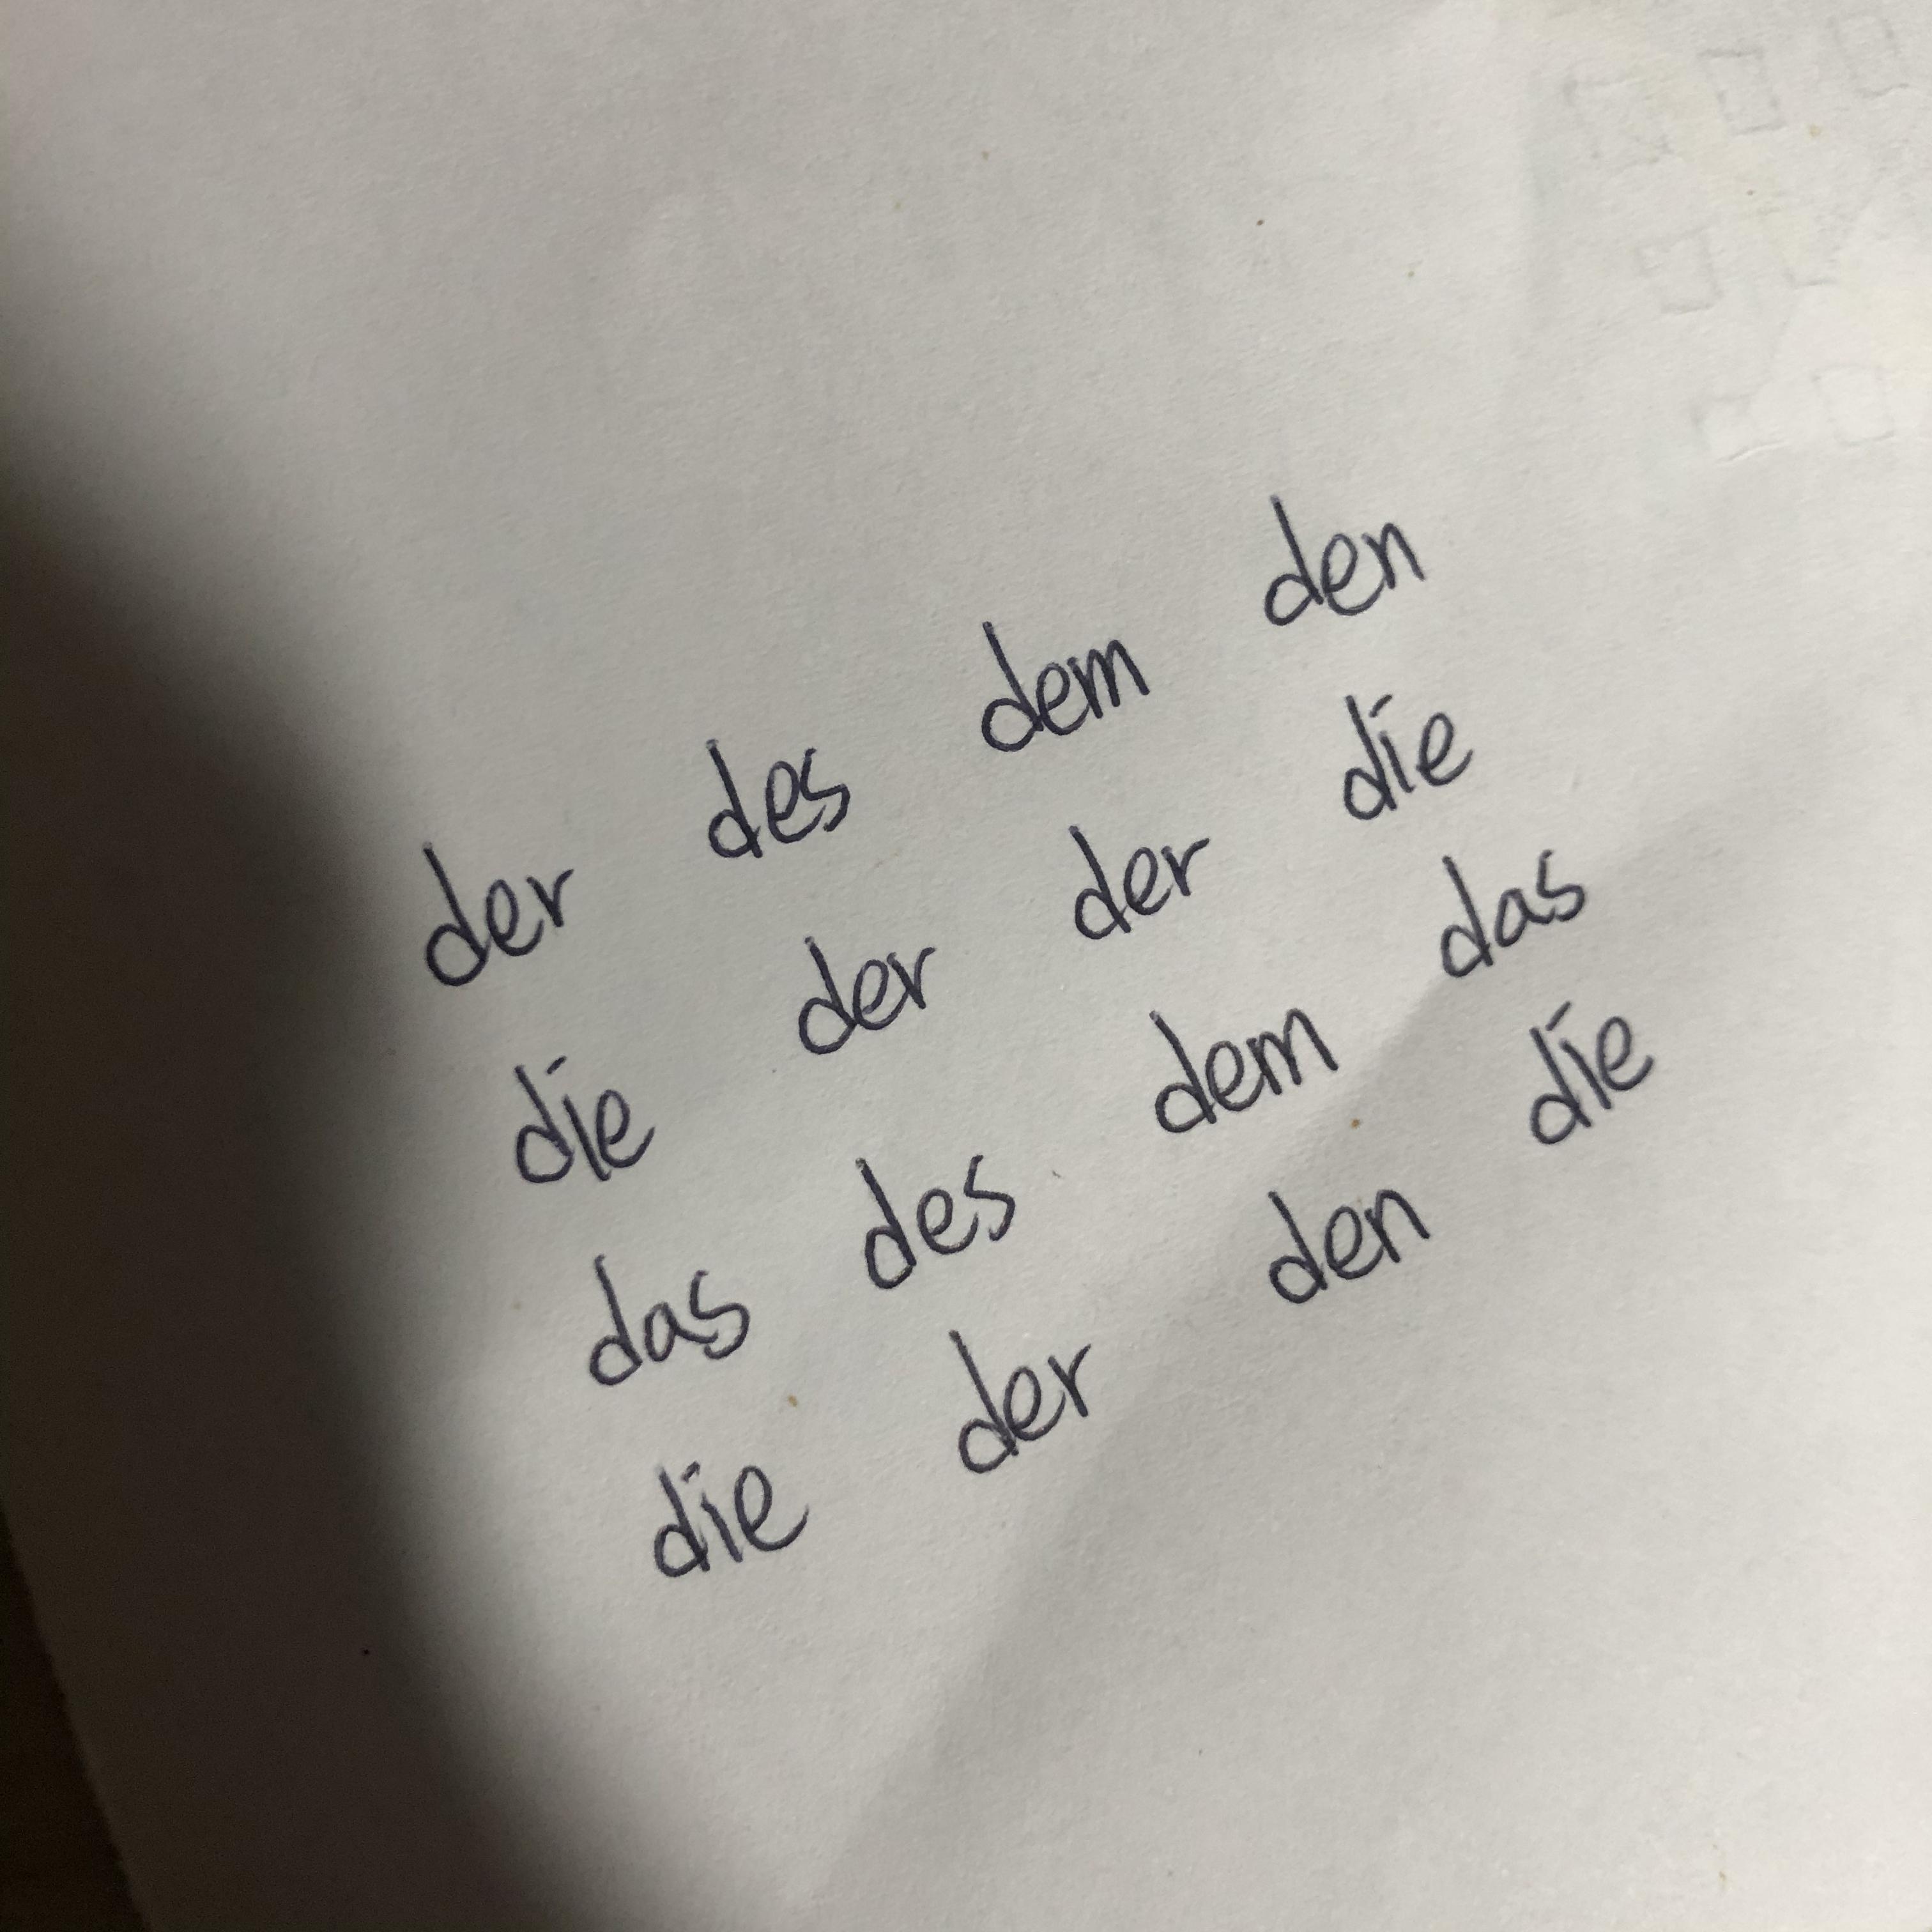 der des dem den
die der der die
das des dem das
die der den die